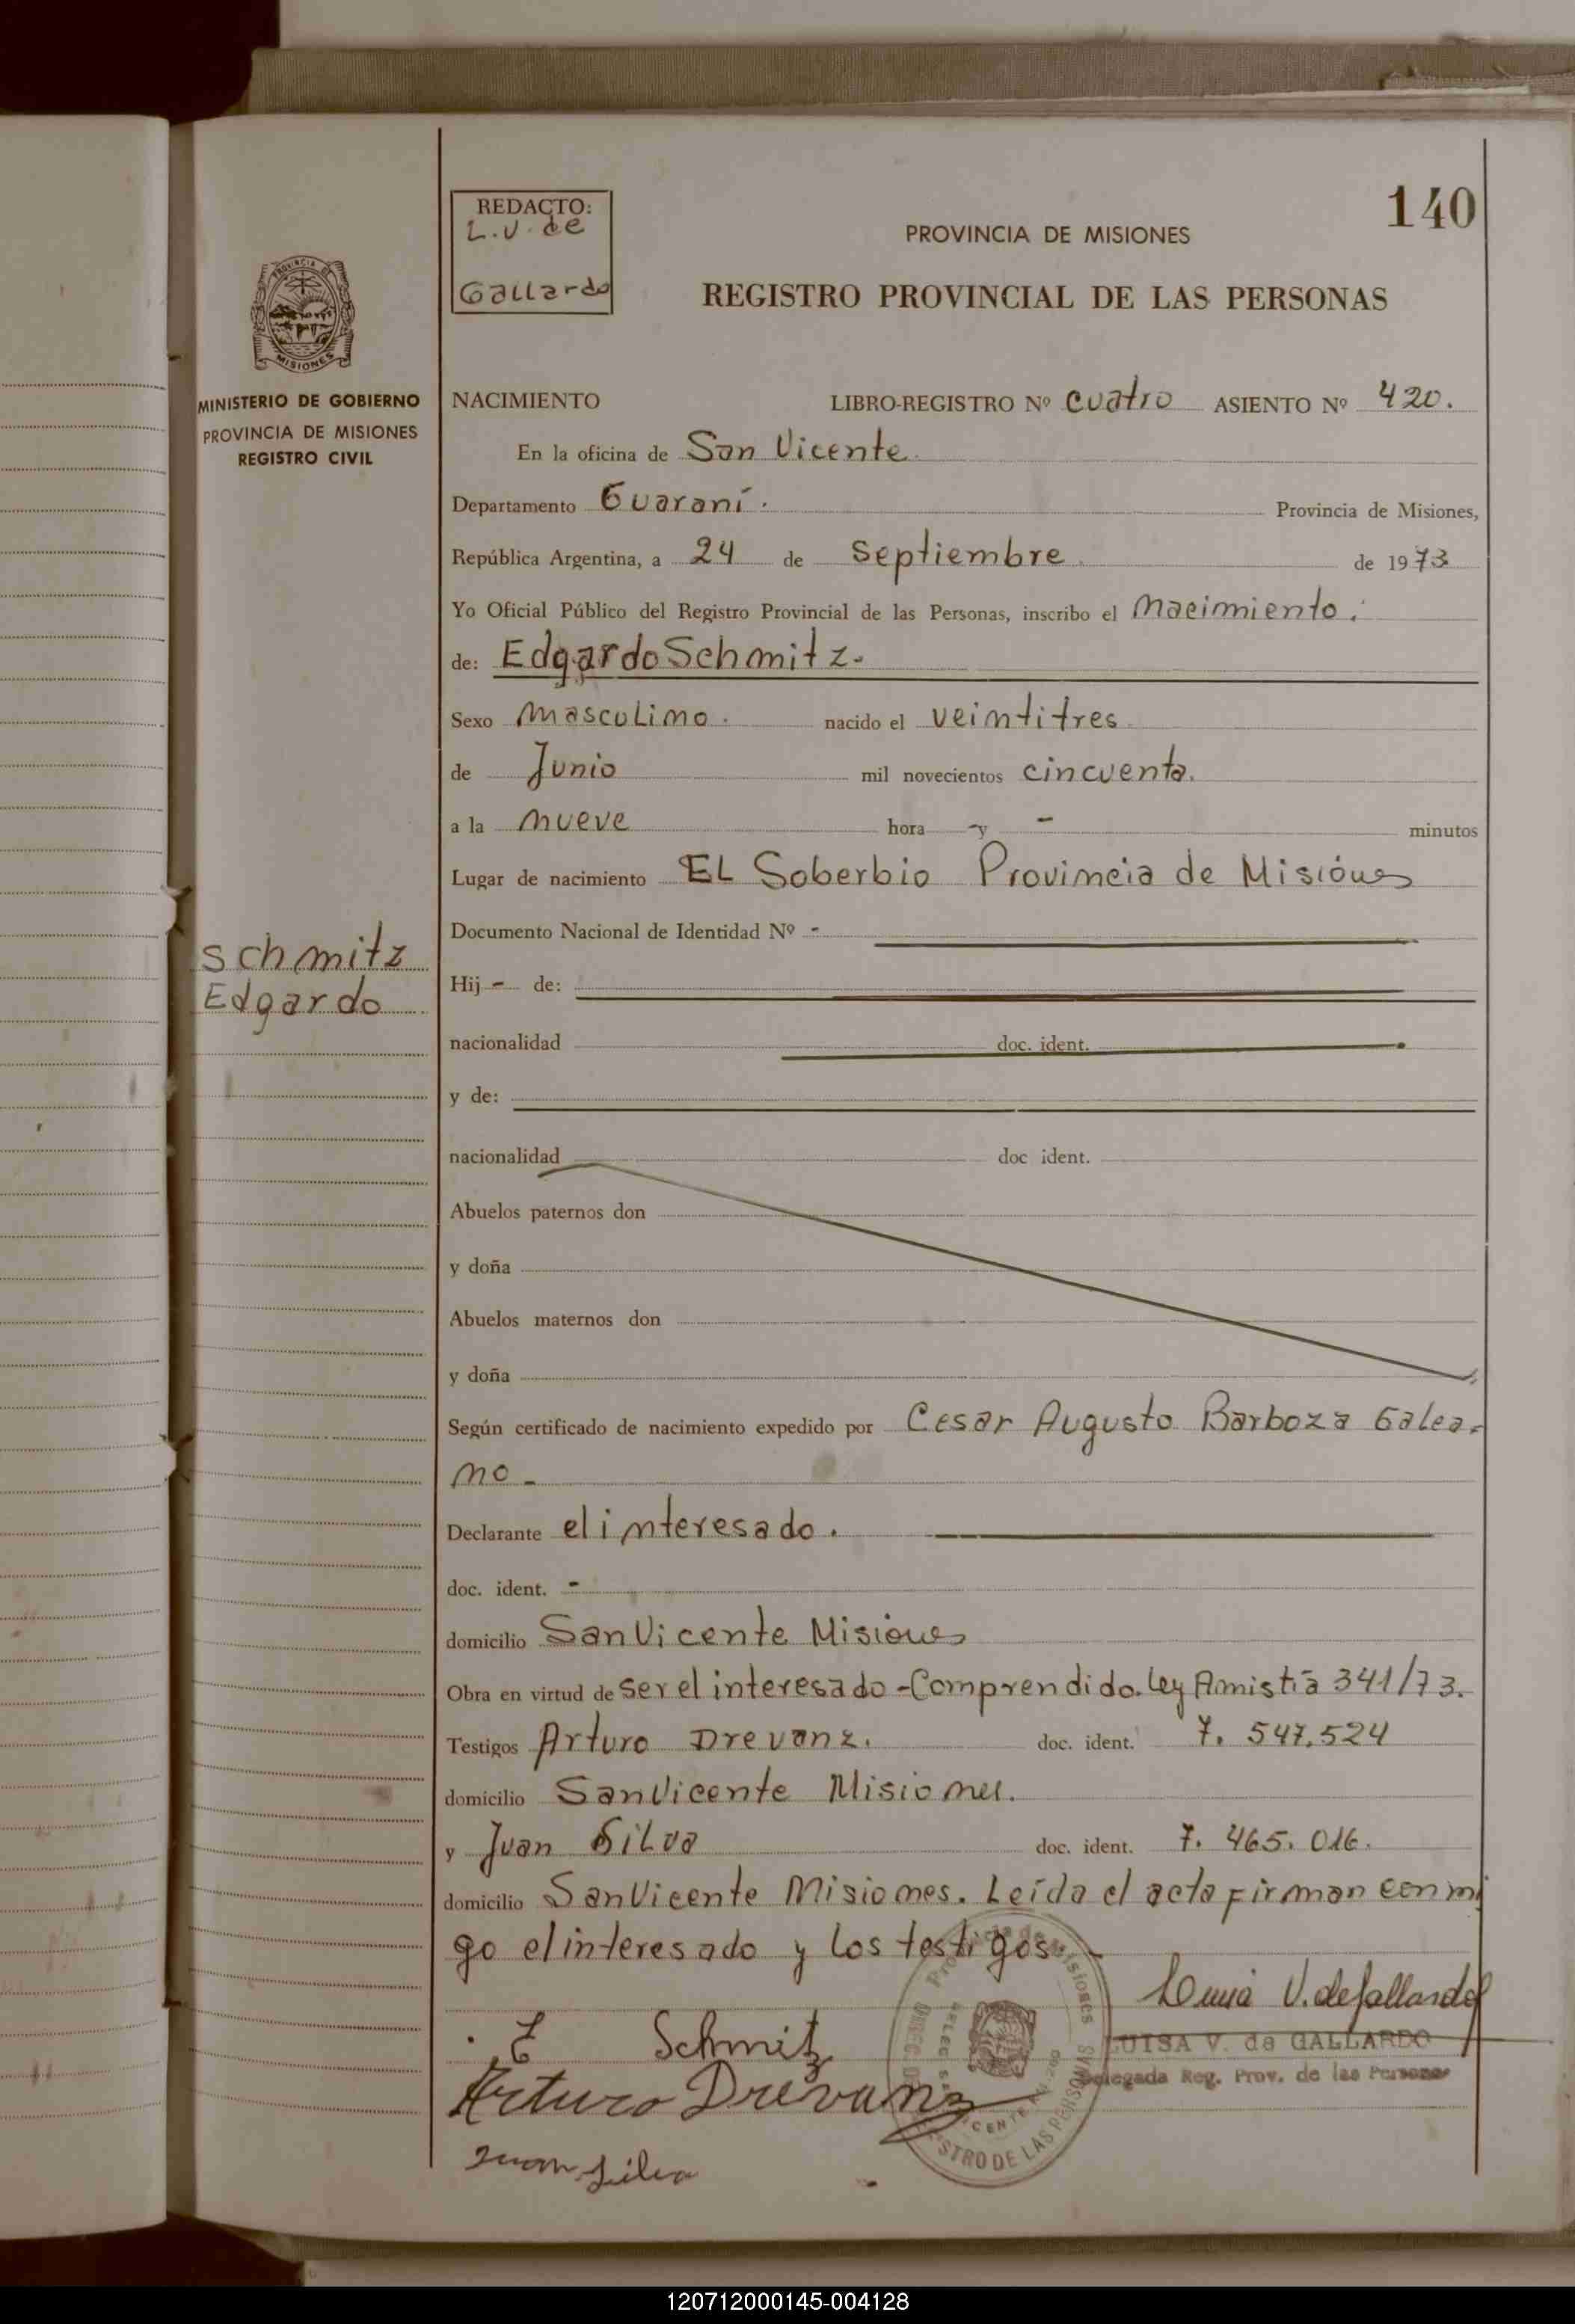 140
REDACTO:
L.V. de
Gallardo
PROVINCIA DE MISIONES
REGISTRO PROVINCIAL DE LAS PERSONAS
PROVINCIA DE
MISIONES
MINISTERIO DE GOBIERNO
PROVINCIA DE MISIONES
REGISTRO CIVIL
Schmitz
Edgardo
NACIMIENTO LIBRO-REGISTRO Nº cuatro ASIENTO Nº 420.
En la oficina de San Vicente
Departamento Guaraní. Provincia de Misiones,
República Argentina, a 24 de septiembre de 1973
Yo Oficial Público del Registro Provincial de las Personas, inscribo el nacimiento.
de: Edgardo Schmitz.
Sexo masculino. nacido el veintitres
de Junio mil novecientos cincuenta.
a la nueve hora - y - minutos
Lugar de nacimiento EL Soberbio Provincia de Misiones
Documento Nacional de Identidad Nº -
Hij - de:
nacionalidad doc. ident.
y de:
nacionalidad doc ident.
Abuelos paternos don
y doña
Abuelos maternos don
y doña
Según certificado de nacimiento expedido por Cesar Augusto Barboza Galea-
no-
Declarante el interesado.
doc. ident. -
domicilio San Vicente Misiones
Obra en virtud de ser el interesado - Comprendido. Ley Amistia 341/73.
Testigos Arturo Drevanz. doc. ident. 7.547.524
domicilio San Vicente Misiones.
y Juan Silva doc. ident. 7.465.016.
domicilio San Vicente Misiones. Leída el acta firman conmi
go el interesado y los testigos. -
V. de Gallardo
E Schmitz
LUISA V. de GALLARDO
Delegada Reg. Prov. de las Personas
Arturo Drevanz
Juan Silva
120712000145-004128